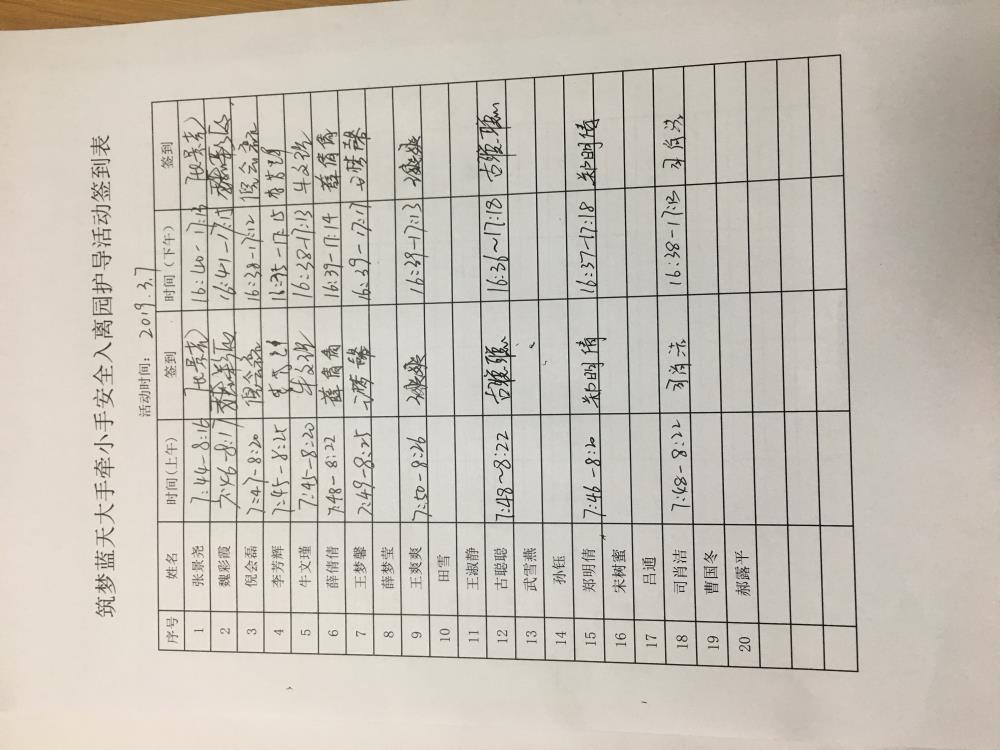 筑梦蓝天大手牵小手安全入离园护导活动签到表
活动时间：2019.3.7
序号 姓名 时间(上午) 签到 时间（下午） 签到
1 张景尧 7:44-8:16 张景尧 16:40-17:13 张景尧
2 魏彩霞 7:46-8:17 魏彩霞 16:41-17:15 魏彩霞
3 倪会磊 7:47-8:20 倪会磊 16:38-17:12 倪会磊
4 李芳辉 7:45-8:25 李芳辉 16:35-17:15 李芳辉
5 牛文瑾 7:45-8:20 牛文瑾 16:38-17:13 牛文瑾
6 薛倩倩 7:48-8:22 薛倩倩 16:39-17:14 薛倩倩
7 王梦馨 7:49-8:25 王梦馨 16:39-17:17 王梦馨
8 薛梦莹
9 王爽爽 7:50-8:26 王爽爽 16:39-17:13 王爽爽
10 田雪
11 王淑静
12 古聪聪 7:48~8:22 古聪聪 16:36~17:18 古聪聪
13 武雪燕
14 孙钰
15 郑明倩 7:46-8:20 郑明倩 16:37-17:18 郑明倩
16 宋树蜜
17 吕通
18 司肖洁 7:48-8:22 司肖洁 16:38-17:15 司肖洁
19 曹国冬
20 郝露平